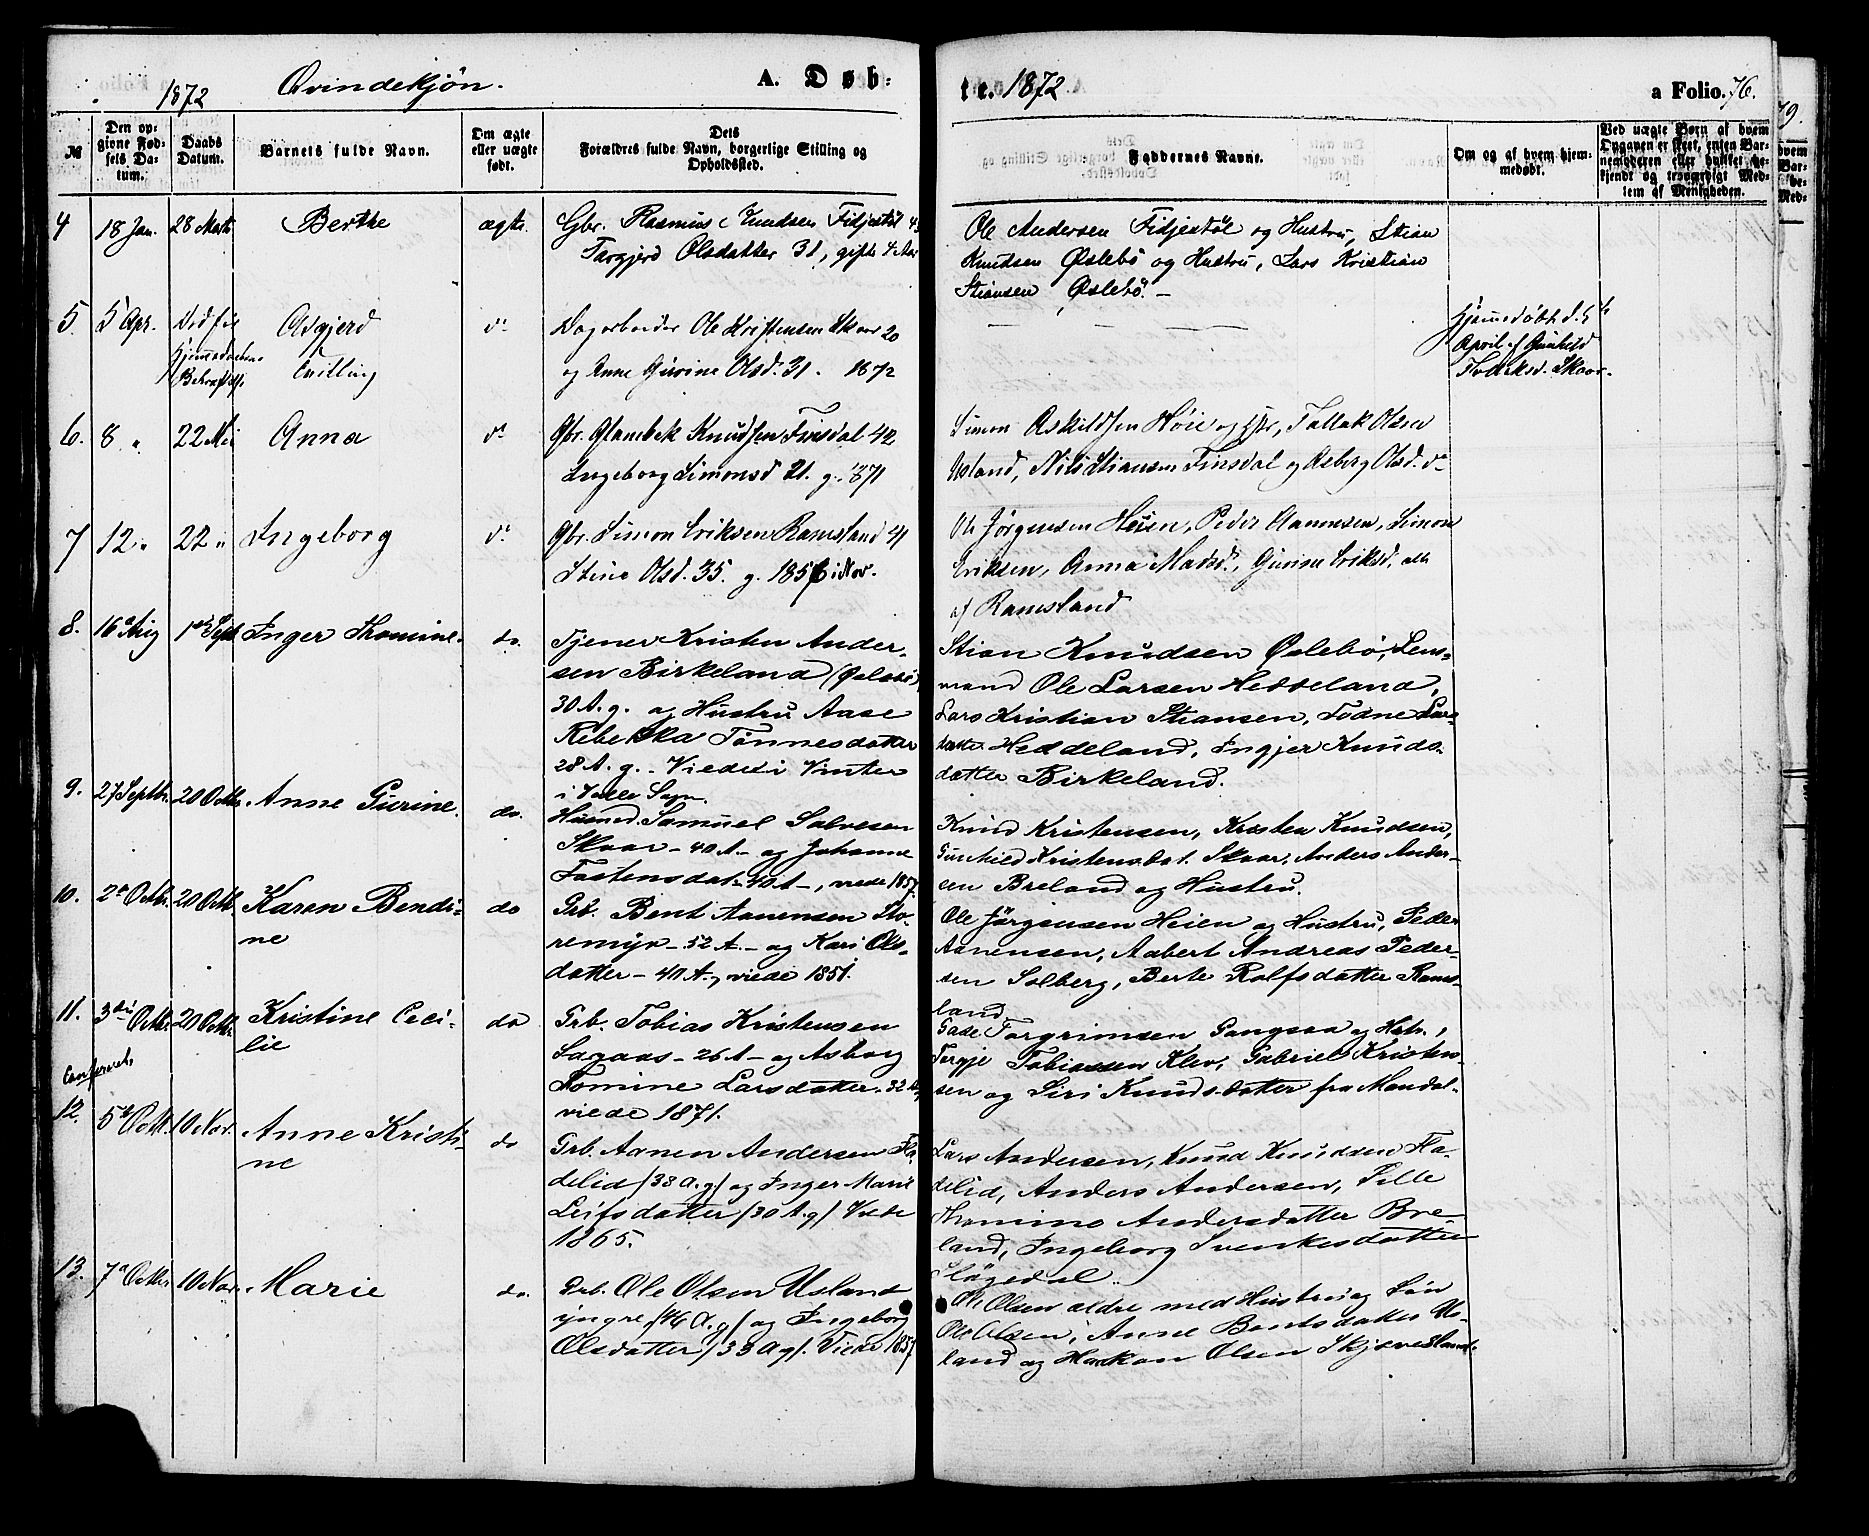 1872 Qvindekjøn. A. Døb-
te. 1872 a Folio. 76.
№
Den opgivne Fødsels Datum.
Daabs Datum.
Barnets fulde Navn.
Om ægte eller uægte født.
Dets Forældres fulde Navn, borgerlige Stilling og Opholdssted.
Faddernes Navne.
Om og af hvem hjemmedøbt.
Ved uægte Børn af hvem Opgaven er skeet, enten Barnemoderen eller hvilket bekjendt og troværdigt Medlem af Menigheden.
4 18 Jan. 28 Marts Berthe ægte.
Gbr. Rasmus Knudsen Fidjestøl
Targjerd Olsdatter 31, gifte 4 Aar
Ole Andersen Fidjestøl og Hustru, Stian
Knudsen Øslebø og Hustru, Lars Kristian
Stiansen Øslebø. —
5. 5 Apr. Asgjerd do
Tvilling
Dagarbeider Ole Kristensen Skaar 20
og Anne Gurine Olsd. 31. 1872
Hjemmedøbt d. 5te
April af Gunhild
Skaar.
6. 8 " 22 Mai Anna do
Gbr. Glambek Knudsen Finsdal 42
Ingeborg Simonsd 21. g. 1871
Simon Askildsen Høie og Hstr, Tallak Olsen
Usland, Nils Stiansen Finsdal og Asberg Olsd. do
7 12 " 22 " Ingeborg do
Gbr. Simon Eriksen Ramsland 41
Stine Olsd. 35. g. 1856 i Nov.
Ole Jørgensen Heien, Peder Aanensen, Simon
Eriksen, Anna Madsd., Gurine Eriksd. alle
af Ramsland
8. 16 Aug 1ste Sept Inger Thomine. do.
Tjener Kristen Ander-
sen Birkeland (Øslebø)
30 A. g. og Hustru Aase
Rebekka Tønnesdatter
28 A. g. Viede i Vinter
i Valle Sogn.
Stian Knudsen Øslebø, Lens-
mand Ole Larsen Heddeland,
Lars Kristian Stiansen, Todne Lars-
datter Heddeland, Ingjer Knuds-
datter Birkeland.
9. 27 Septbr. 20 Octbr. Anne Gurine. do.
Husmd. Samuel Salvesen
Skaar — 40 A — og Johanne
Tostensdat. 40 A —, viede 1857.
Knud Kristensen, Kristen Knudsen,
Gunhild Kristensdat. Skaar, Anders Ander-
sen Breland og Hustru.
10. 2de Octbr. 20 Octb. Karen Bendi-
ne do
Grb. Bent Aanensen Sto-
remyr — 52 A. — og Kari Ols-
datter — 40 A., viede 1851.
Ole Jørgensen Heien og Hustru, Peder
Aanensen, Aabert Andreas Peder-
sen Solberg, Berte Rolfsdatter Rams-
land.
11. 3die Octbr. 20 Octbr. Kristine Ceci-
lie do
Grb. Tobias Kristensen
Lagaas — 26 A — og Asborg
Tomine Larsdatter. 32 A,
viede 1871.
Torgrimsen Gangsaa og Hstr.,
Tergje Tobiassen Klev, Gabriel Kristen-
sen og Siri Knudsdatter fra Mandal.
12. 5te Octb. 10 Nov. Anne Kristi-
ne do
Grb. Aanen Andersen Fla-
delid (38 A. g) og Inger Marie
Leifsdatter (30 A. g) Viede
1865.
Lars Andersen, Knud Knudsen Fla-
delid, Anders Andersen, Sille
Thomine Andersdatter Bre-
land, Ingeborg Svenkesdatter
Sløgedal.
13. 7de Octbr. 10 Nov. Marie do.
Grb. Ole Olsen Usland
yngre (46 A. g) og Ingeborg
Olsdatter (33 A g). Viede 1857
Ole Olsen ældre med Hustru og Søn
Ole Olsen, Anne Bentsdatter Us-
land og Haakon Olsen Skjævesland.